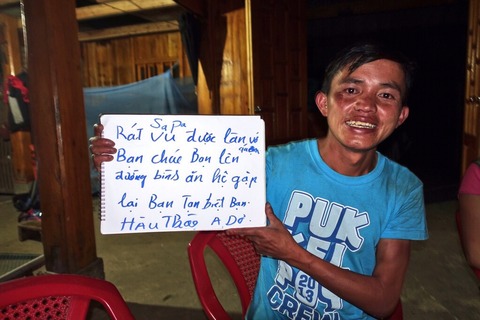 SaPa
Rất Vu được làn vô quen
Bạn chúc Bạn lên
đường bình ăn hệ gặp
lại Bạn Tạm biệt Bạn.
HÂU THÀO A Dơ.
PUK
CREW
2013